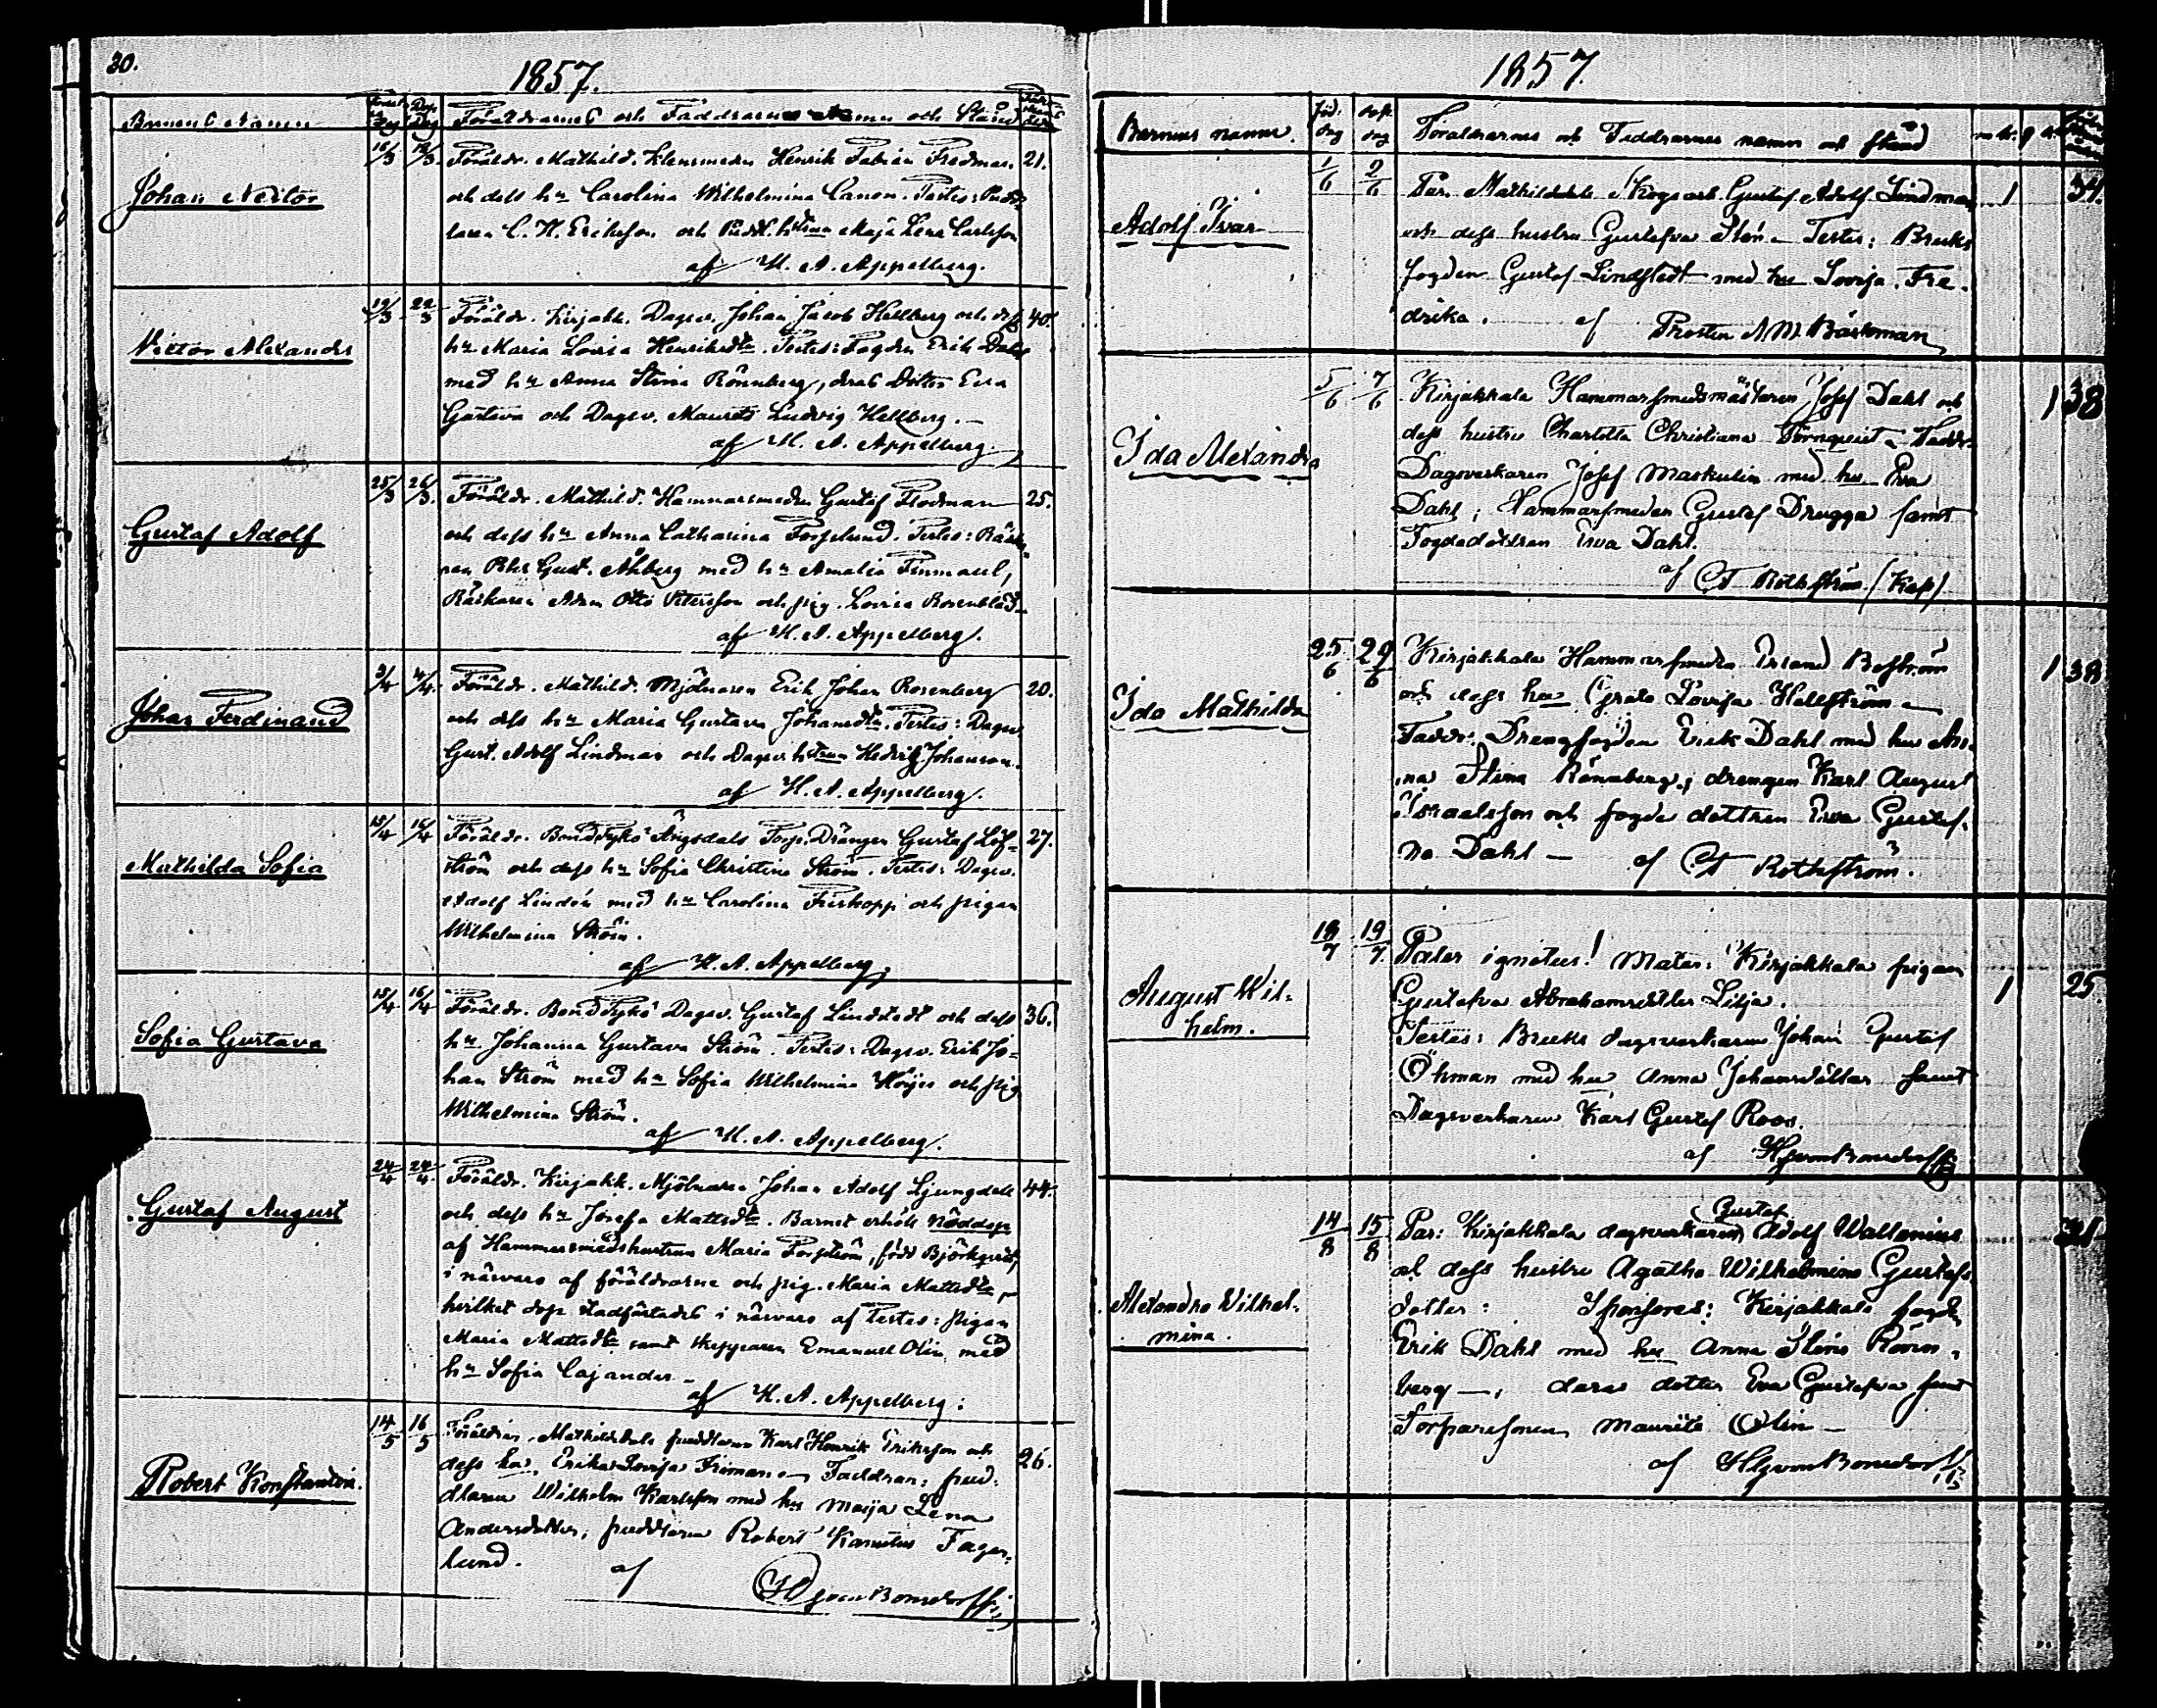 30.
1857.
Barnens Namn Födels Dag Dop Dag Föräldrarnes och Faddrarnes Namn och Stånd
Johan Nestor 16/3 19/3. Föräldr. Mathild. Klensmeden Henrik Fabian Fredman. 21.
och dess hu Carolina Wilhelmina Canon. Testes: Pudd-
laren C. H. Eriksson och Puddl. hustrun Maja Lena Carlsson
af H. A. Appelberg.
Victor Alexander 19/3 22/3 Föräldr. Kirjakk. Dagsv. Johan Jacob Hellberg och dess 40.
hu Maria Lovisa Henriksdtr. Testes: Fogden Erik Dahl
med hu Anna Stina Rönnberg, deras Dotter Eva
Gustava och Dagsv. Maurits Ludvig Hellberg.
af H. A. Appelberg.
Gustaf Adolf 25/3 26/3. Föräldr. Mathild. Hammarsmeden Gustaf Flodman 25.
och dess hu Anna Catharina Forsselund. Testes:
Gust. Åhberg med hu Amalia
Adam Otto Petersson och pig. Lovisa Rosenblad
af H. A. Appelberg.
Johan Ferdinand 3/4 4/4. Föräldr. Mathild. Mjölnaren Erik Johan Rosenberg 20.
och dess hu Maria Gustava Johansdtr. Testes: Dagsv.
Gust. Adolf Lindman och Dagsv. hustrun Hedvig Johanson.
af H. A. Appelberg.
Mathilda Sofia 15/4 16/4 Föräldr. Ängsdals Torp. Drängen Gustaf Löf- 27.
ström och dess hu Sofia Christina Ström. Testes: Dagsv.
Adolf Lindén med hu Carolina Friskopp och pigan
Wilhelmina Ström.
af H. A. Appelberg.
Sofia Gustava 15/4 16/4 Föräldr. Dagsv. Gustaf Lindstedt och dess 36.
hu Johanna Gustava Ström. Testes: Dagsv. Erik Jo-
han Ström med hu Sofia Wilhelmina och pig
Wilhelmina Ström.
af H. A. Appelberg.
Gustaf August 24/4 24/4. Föräldr. Kirjakk. Mjölnaren Johan Adolf Ljungdell 44.
och dess hu Josefa Mattsdtr. Barnet erhöll nöddop
af Hammarsmedshustrun Maria Forsström, född Björkqvist,
i närvaro af föräldrarne och pig. Maria Mattsdtr,
hvilket dop stadfästades i närvaro af Testes: pigan
Maria Mattsdtr samt skepparen Emanuel Olin med
hu Sofia Cajander.
af H. A. Appelberg.
Robert Konstantin. 14/5 16/5 Föräldrar, Mathildedals puddlaren Karl Henrik Eriksson och 26.
dess hu, Erika Lovisa Friman Faddrar: pud-
dlaren Wilhelm Karlsson med hu Maija Lena
Andersdotter, puddlaren Robert Fager-
lund. af
HG von Bonsdorff
1857.
Barnens namn. föd. dag dop. dag Föräldrarnes och Faddrarnes namn och stånd
Adolf Ivar 1/6 2/6 Par. Mathildedals Skogsarb. Gustaf Adolf Lindman 1 34.
och dess hustru Gustafva Stén Testes: Bruks
fogden Gustaf Lindstedt med hu Lovisa Fre-
drika. af Prosten A. M. Bäckman
Ida Alexandra 5/6 7/6 Kirjakkala Hammarsmedsmästaren Josef Dahl och 1 38
dess hustru Charlotta Christiana Törnqvist Faddr.
Dagsverkaren Josef Maskulin med hu Eva
Dahl; Hammarsmeden Gustaf Drugga samt
Fogdedottren Eva Dahl.
af CF Rothström (Kap)
Ida Mathilda 25/6 29/6 Kirjakkala Hammarsmeden Erland Boström 1 38
och dess hu Greta Lovisa Hellström
Faddr. Drengfogden Erik Dahl med hu An-
na Stina Rönnberg; drengen Karl August
Israelsson och fogde dottren Eva Gustaf-
va Dahl af CF Rothström.
August Wil-
helm. 18/7 19/7 Pater ignotus! Mater: Kirjakkala pigan 1 25.
Gustafva Abrahamsdotter Lilja.
Testes: Bruks dagsverkaren Johan Gustaf
Öhman med hu Anna Johansdotter samt
Dagsverkaren Karl Gustaf Roos.
af HG von Bonsdorff
Alexandra Wilhel-
mina. 14/8 15/8 Par: Kirjakkala dagsverkaren Gustaf Adolf Wallenius 31
och dess hustru Agatha Wilhelmina Gustafs
dotter: Sponsores: Kirjakkala fogden
Erik Dahl med hu Anna Stina Rönn-
berg, deras dotter Eva Gustafva samt
Torparesonen Maurits Olin
af HG von Bonsdorff